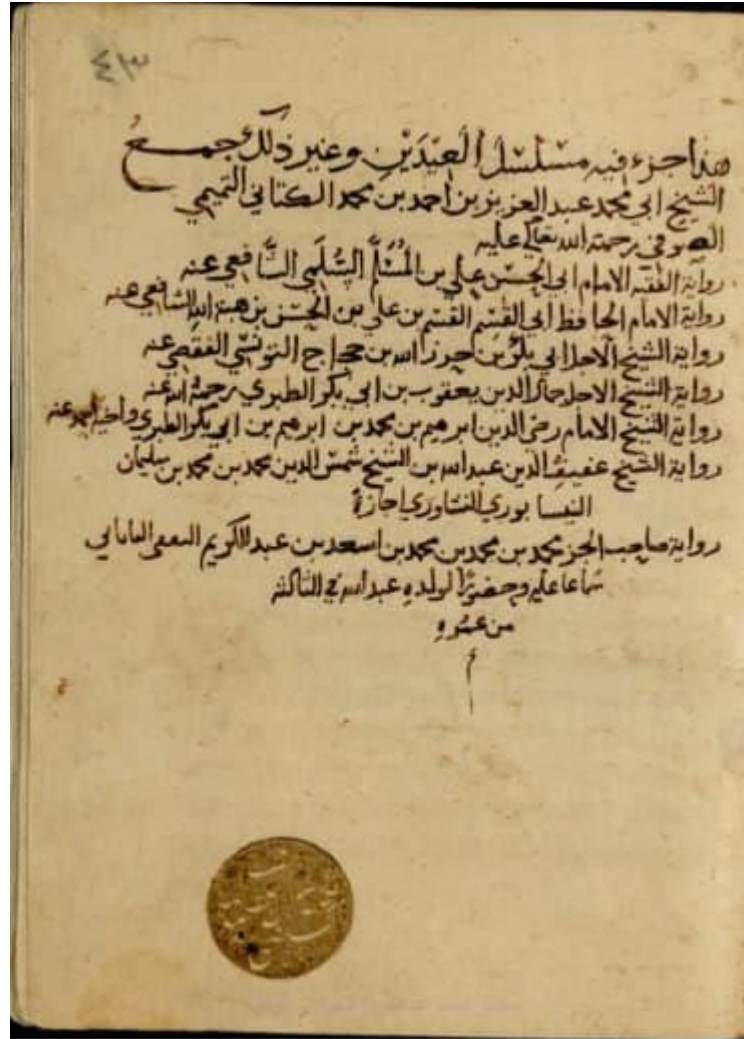 ٤٣
هذا جزء فيه مسلسل العيدين وغير ذلك جمع
الشيخ ابي محمد عبد العزيز بن أحمد بن محمد الكتاني التميمي
الصوفي رحمة الله تعالى عليه
رواية الفقيه الامام ابي الحسن علي بن المُسَلَّم السُّلَمي الشَّافعي عنه
رواية الامام الحافظ أبي القسم القسم بن علي بن الحسن بن هبة الله الشافعي عنه
رواية الشيخ الاجل ابي بكر بن حرز الله بن حجاج التونسي القفصي عنه
رواية الشيخ الاجل جمال الدين يعقوب بن ابي بكر الطبري رحمه الله عنه
رواية الشيخ الامام رضي الدين ابرهيم بن محمد بن ابرهيم بن ابي بكر الطبري وأخيه احمد عنه
رواية الشيخ عفيف الدين عبد الله بن الشيخ شمس الدين محمد بن محمد بن سليمان
النيسابوري النشاوري اجازة
رواية صاحب الجز محمد بن محمد بن محمد بن اسعد بن عبد الكريم الثقفي القاياتي
سماعا عليه وحضورًا لولده عبد الله في الثالثة
من عمره